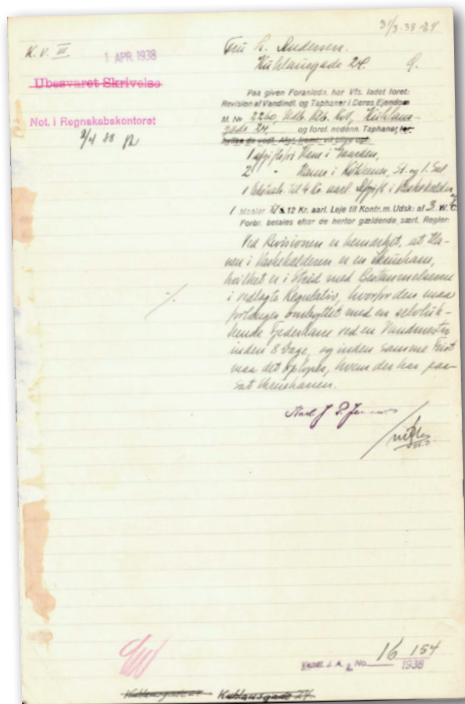 31/3-38-
K. V. III
1 APR. 1938
Ubesvaret Skrivelse
Not. i Regnskabskontoret
Fru L. Andersen.
Kuhlausgade 24.
Paa given Foranledn. har Vfs. ladet foret:
Revision af Vandindl. og Taphaner i Deres Ejendom
M. Nr. 2260, Udb. Klb. Kvt, Kuhlaus-
gade 24. og foret. nedenn. Taphaner,
1 afgiftsfor Hane i Gaarden,
2 " Haner i Køkkener, St. og 1. Sal
1 i Vaskekælder
1 Maaler 12 Kr. aarl. Leje til Kontr. m. Udsk: af 3.
Forbr. betales efter de herfor gældende, sært. Regler.
Ved Revisionen er bemærket, at Ha-
nen i Vaskekælderen er en Skruehane,
hvilket er i Strid med Bestemmelserne
i vedlagte Regulativ, hvorfor den maa
forlanges ombyttet med en selvluk-
kende Fjederhane ved en Vandmester
inden 8 Dage, og inden samme Frist
maa det oplyses, hvem der har paa-
sat Skruehanen.
16 154
1938
Kuhlausgade 24.